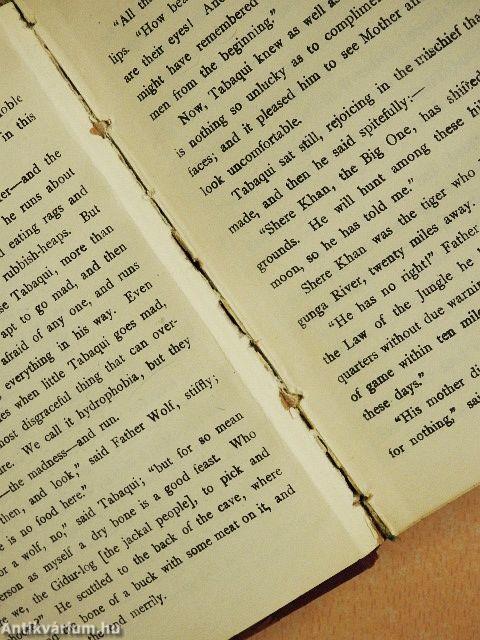 oble
in this
er—and the
he runs about
d eating rags and
rubbish-heaps. But
se Tabaqui, more than
apt to go mad, and then
afraid of any one, and runs
everything in his way. Even
es when little Tabaqui goes mad,
most disgraceful thing that can over-
ure. We call it hydrophobia, but they
—the madness—and run.
then, and look," said Father Wolf, stiffly;
e is no food here."
or a wolf, no," said Tabaqui; "but for so mean
erson as myself a dry bone is a good feast. Who
e we, the Gidur-log [the jackal people], to pick and
He scuttled to the back of the cave, where
bone of a buck with some meat on it, and
end merrily.
"All th
lips. "How bea
are their eyes! And
might have remembered
men from the beginning."
Now, Tabaqui knew as well as
is nothing so unlucky as to complimen
faces; and it pleased him to see Mother and
look uncomfortable.
Tabaqui sat still, rejoicing in the mischief tha
made, and then he said spitefully:—
"Shere Khan, the Big One, has shifted
grounds. He will hunt among these hil
moon, so he has told me."
Shere Khan was the tiger who
gunga River, twenty miles away.
"He has no right!" Father
the Law of the Jungle he
quarters without due warnin
of game within ten mile
these days."
"His mother di
for nothing," sai
Antikvárium.hu